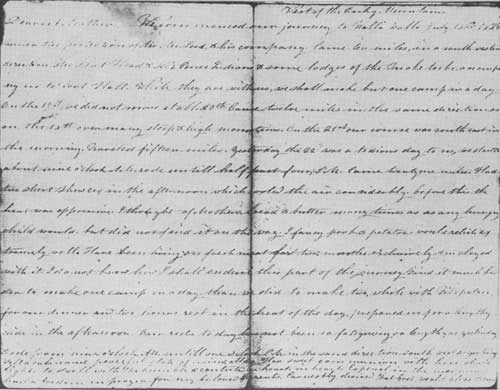 Foot of the Rocky Mountains
Dearest Mother We commenced our journey to Walla Walla July 18th 1836
under the protection of Mr. McLeod, & his company. Came ten miles, in a south west
direction. The Flat Head & Nez Perce Indians & some lodges of the Snake tribe, accompa
ny us to Fort Hall. While they are with us, we shall make but one camp a day.
On the 19th, we did not move at all & 20th Came twelve miles in the same direction as
on the 18th over many steep & high mountains On the 21st our course was southeast in
the morning. Traveled fifteen miles. Yesterday the 22d was a tedious day to us, we started
about nine o'clock A.M. rode untill half past four, P.M. Came twenty one miles. Had
two short showers in the afternoon which cooled the air considerably. before this the
heat was oppressive. I thought of mothers bread & butter many times as any hungry
child would. but did not find it on the way. I fancy pork & potatoes would relish ex
tremely well. Have been living on fresh meat for two months exclusively. Am cloyed
with it. I do not know how I shall endure this part of the journey.
to make one camp in a day than we did to make two, while with Fitzpatric
for our dinner and two hours rest in the heat of the day, prepared us for a lengthy
ride in the afternoon. Our ride to day has not been so fatiguing or lengthy as yesterday
rode from nine o'clock A.M. untill one P.M. in the same direction South west